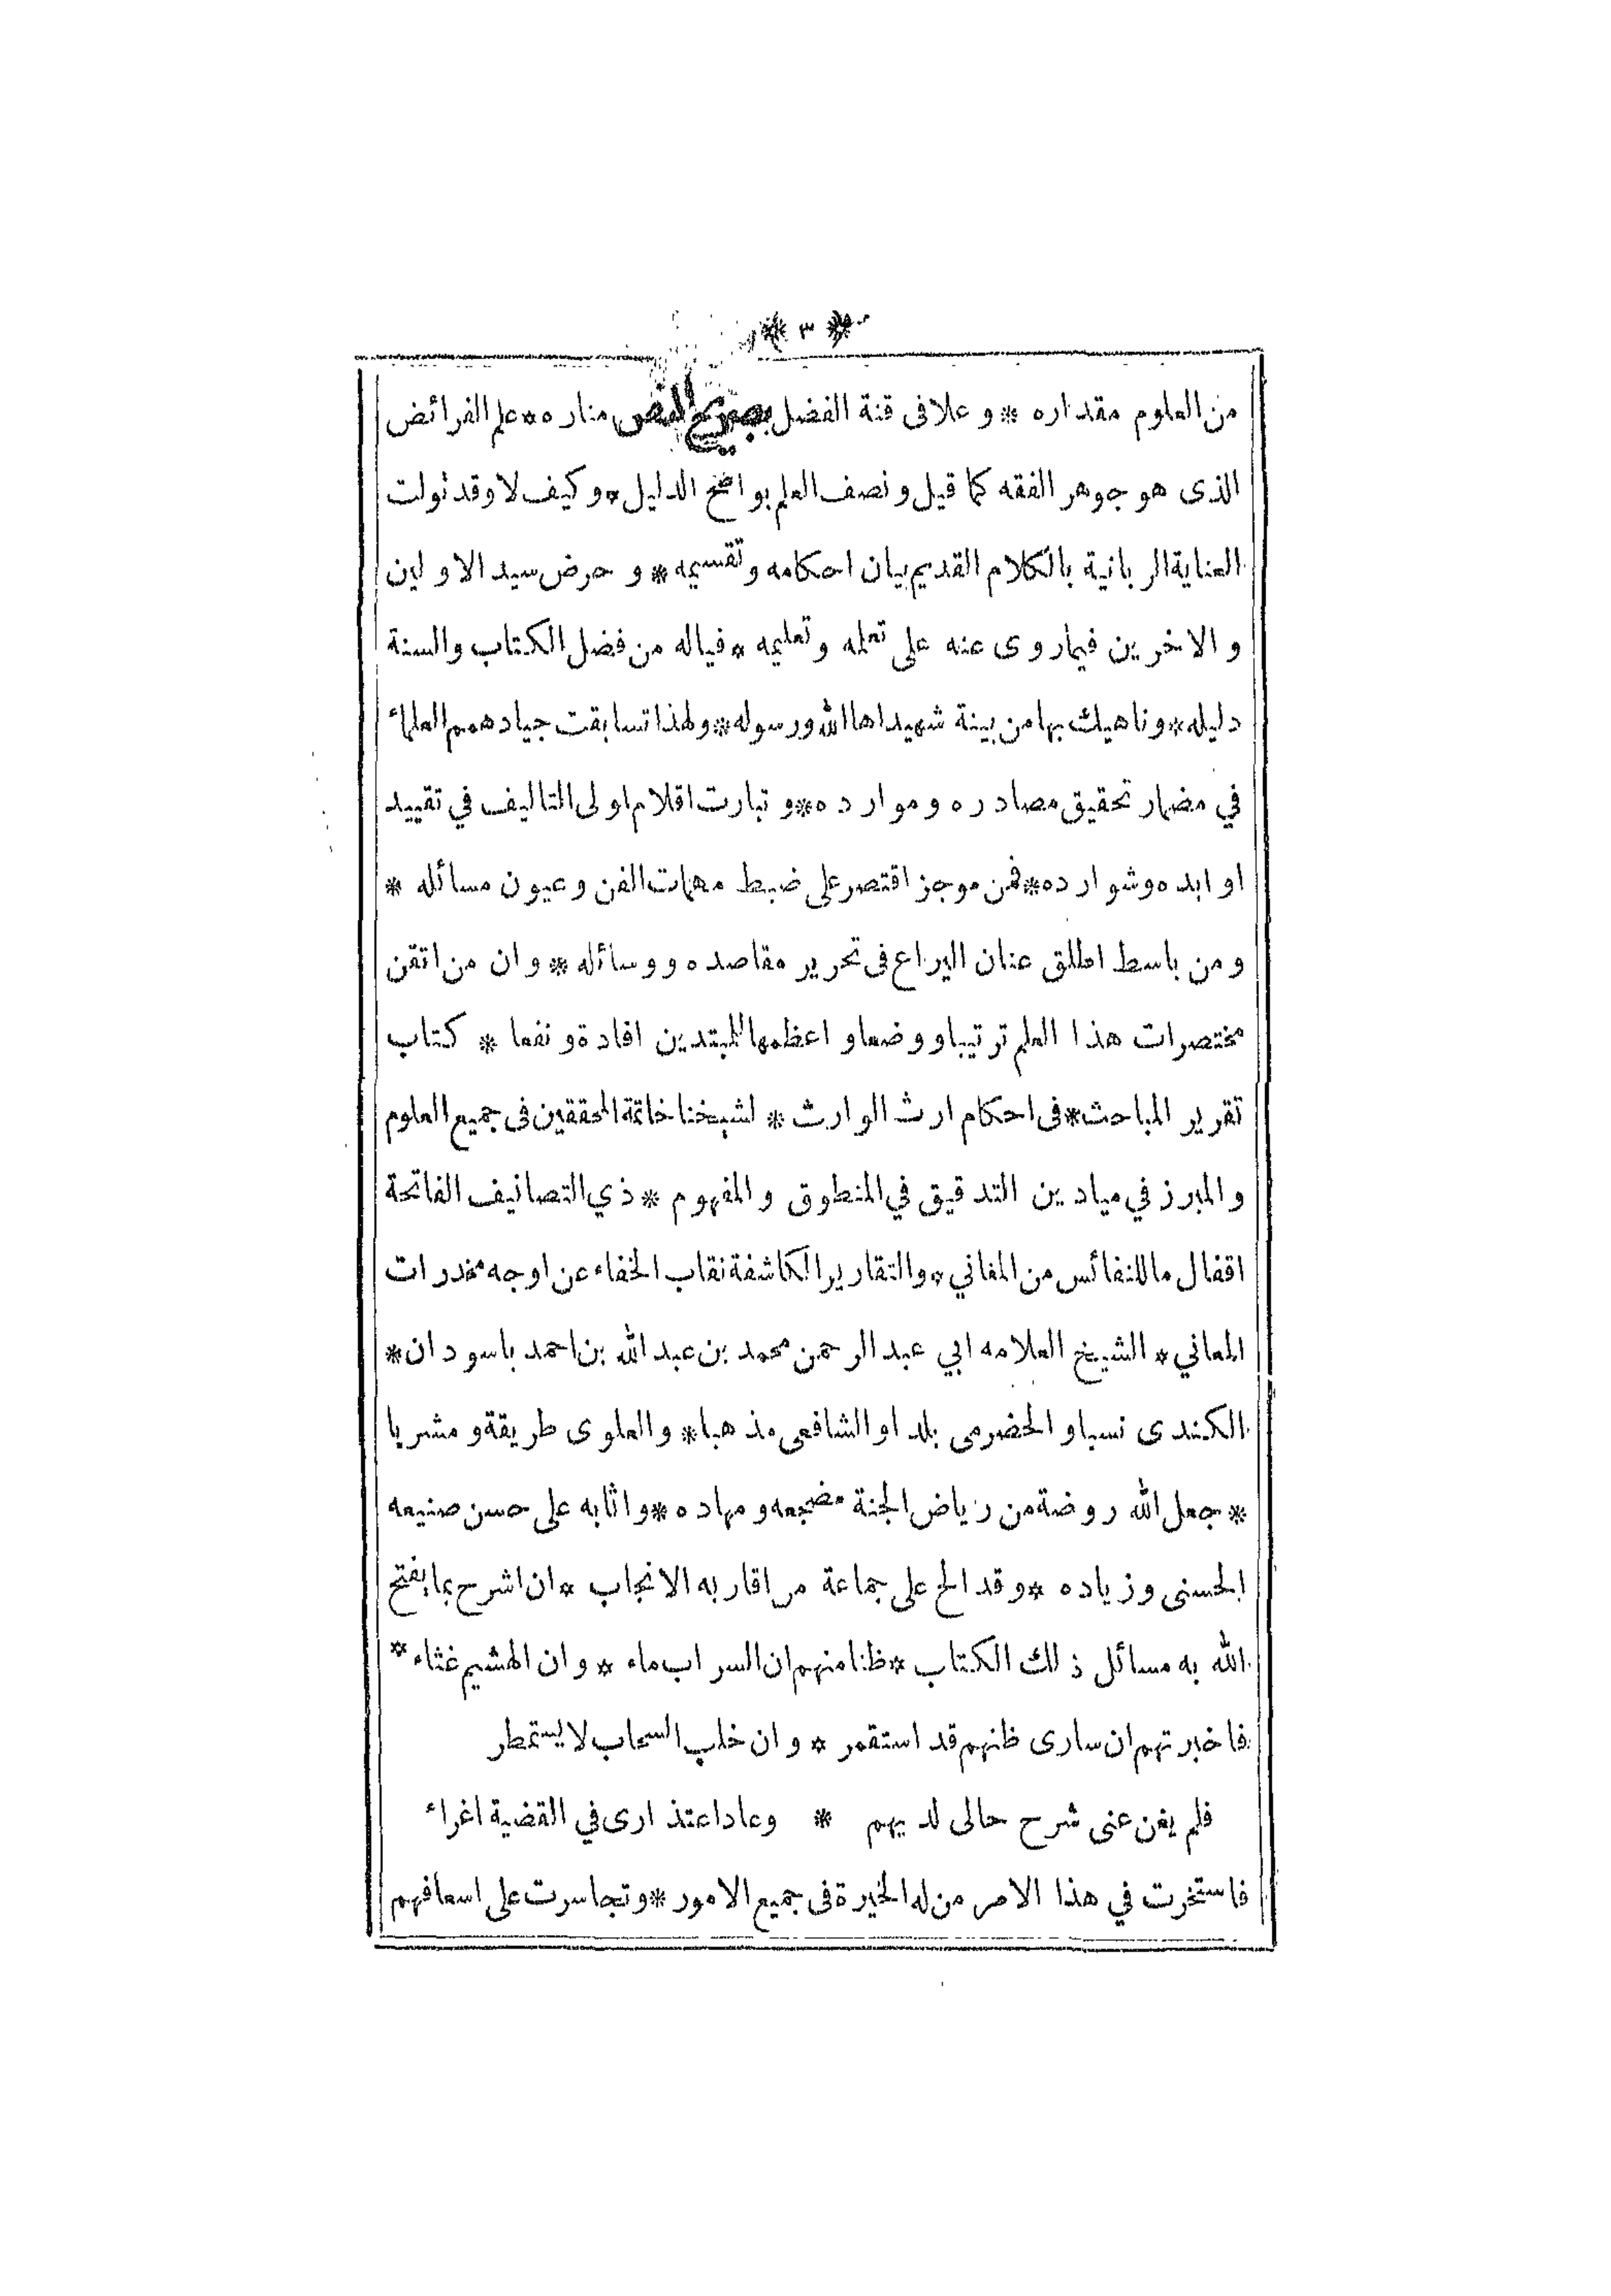 * ٣ *
من العلوم مقداره * وعلا فى قنة الفضل بصريح النص مناره * علم الفرائض
الذى هو جوهر الفقه كما قيل ونصف العلم بواضح الدليل * وكيف لا وقد تولت
العناية الربانية بالكلام القديم بيان احكامه وتقسيمه * وحرض سيد الاولين
والاخرين فيما روى عنه على تعلمه وتعليمه * فياله من فضل الكتاب والسنة
دليله * وناهيك بها من بينة شهيداها الله ورسوله * ولهذا تسابقت جياد همم العلماء
في مضمار تحقيق مصادره وموارده * وتبارت اقلام اولى التاليف في تقييد
اوابده وشوارده * فمن موجز اقتصر على ضبط مهمات الفن وعيون مسائله *
ومن باسط اطلق عنان اليراع فى تحرير مقاصده ووسائله * وان من اتقن
مختصرات هذا العلم ترتيبا ووضعا واعظمها للمبتدين افادة ونفعا * كتاب
تقرير المباحث * فى احكام ارث الوارث * لشيخنا خاتمة المحققين فى جميع العلوم
والمبرز في ميادين التدقيق في المنطوق والمفهوم * ذي التصانيف الفاتحة
اقفال ما للنفائس من المغاني * والتقارير الكاشفة نقاب الخفاء عن اوجه مخدرات
المعاني * الشيخ العلامه ابي عبد الرحمن محمد بن عبد الله بن احمد باسودان *
الكندى نسبا والحضرمى بلدا والشافعى مذهبا * والعلوى طريقة ومشربا
* جعل الله روضة من رياض الجنة مضجعه ومهاده * واثابه على حسن صنيعه
الحسنى وزياده * وقد الح على جماعة من اقاربه الانجاب * ان اشرح بما يفتح
الله به مسائل ذلك الكتاب * ظنا منهم ان السراب ماء * وان الهشيم غثاء *
فاخبرتهم ان سارى ظنهم قد استقمر * وان خلب السحاب لا يستمطر
فلم يغن عنى شرح حالى لديهم * وعاد اعتذارى في القضية اغراء
فاستخرت في هذا الامر من له الخيرة فى جميع الامور * وتجاسرت على اسعافهم